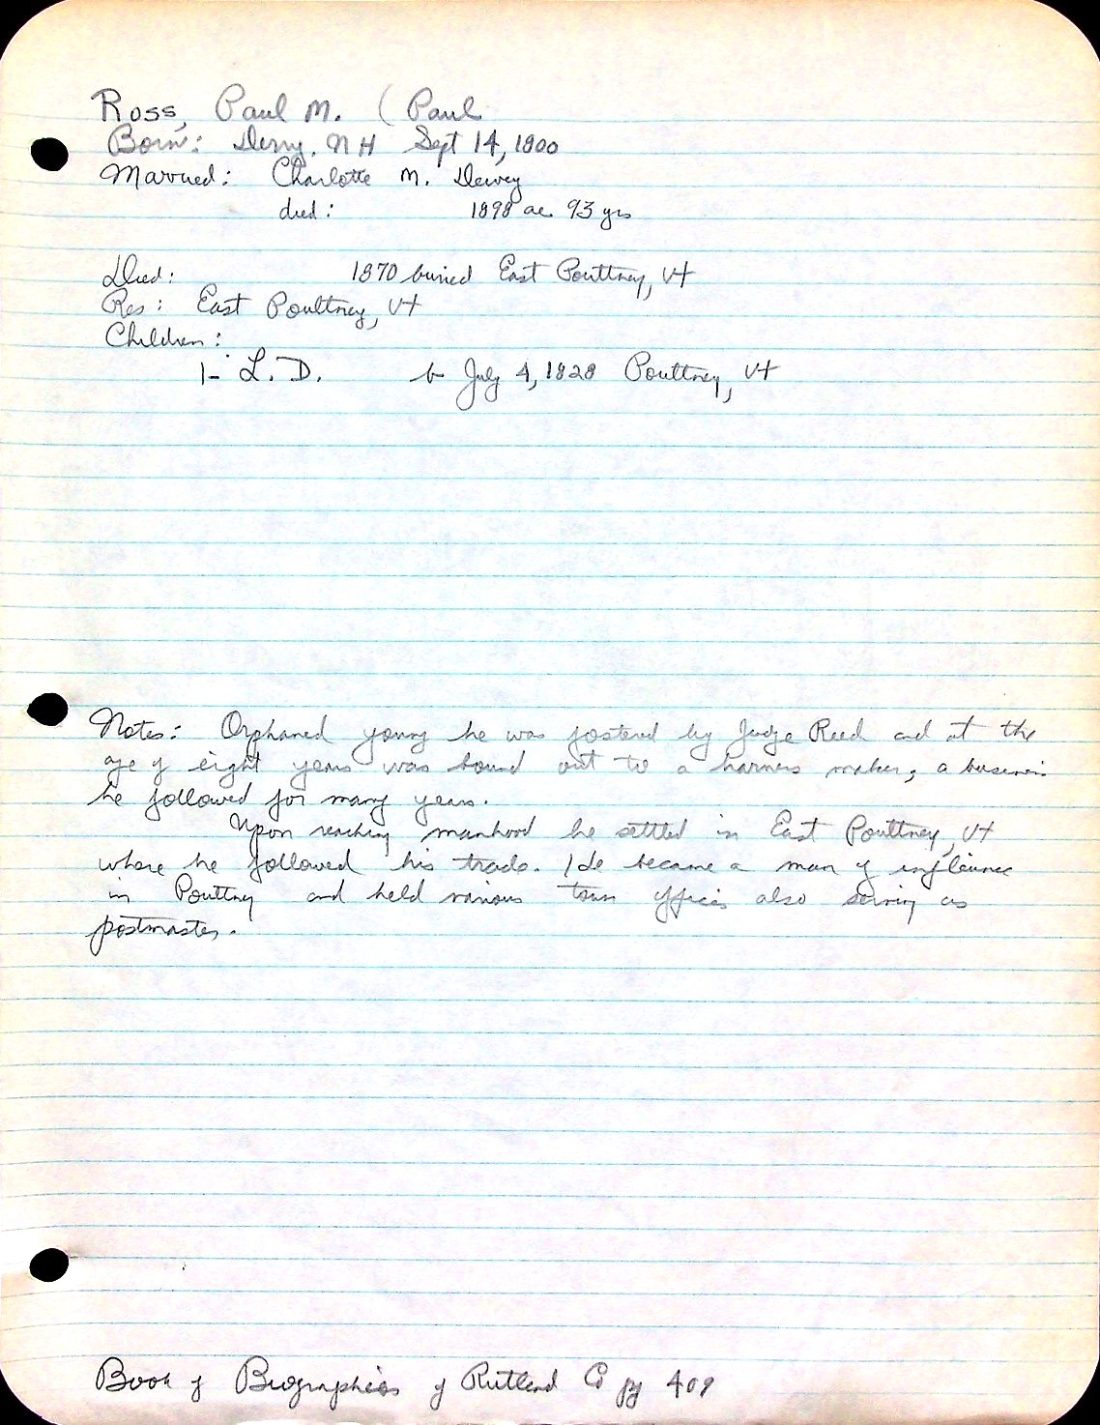 Ross, Paul M. ( Paul
Born: Derry, NH Sept 14, 1800
Married: Charlotte M. Dewey
died: 1898 ae 93 yrs
Died: 1870 buried East Poultney, Vt
Res: East Poultney, Vt
Children:
1- L. D. b July 4, 1828 Poultney, Vt
Notes: Orphaned young he was fostered by Judge Reed and at the
age of eight years was bound out to a harness maker, a business
he followed for many years.
Upon reaching manhood he settled in East Poultney, Vt
where he followed his trade. He became a man of influence
in Poultney and held various town offices also serving as
postmaster.
Book of Biographies of Rutland Co pg 409